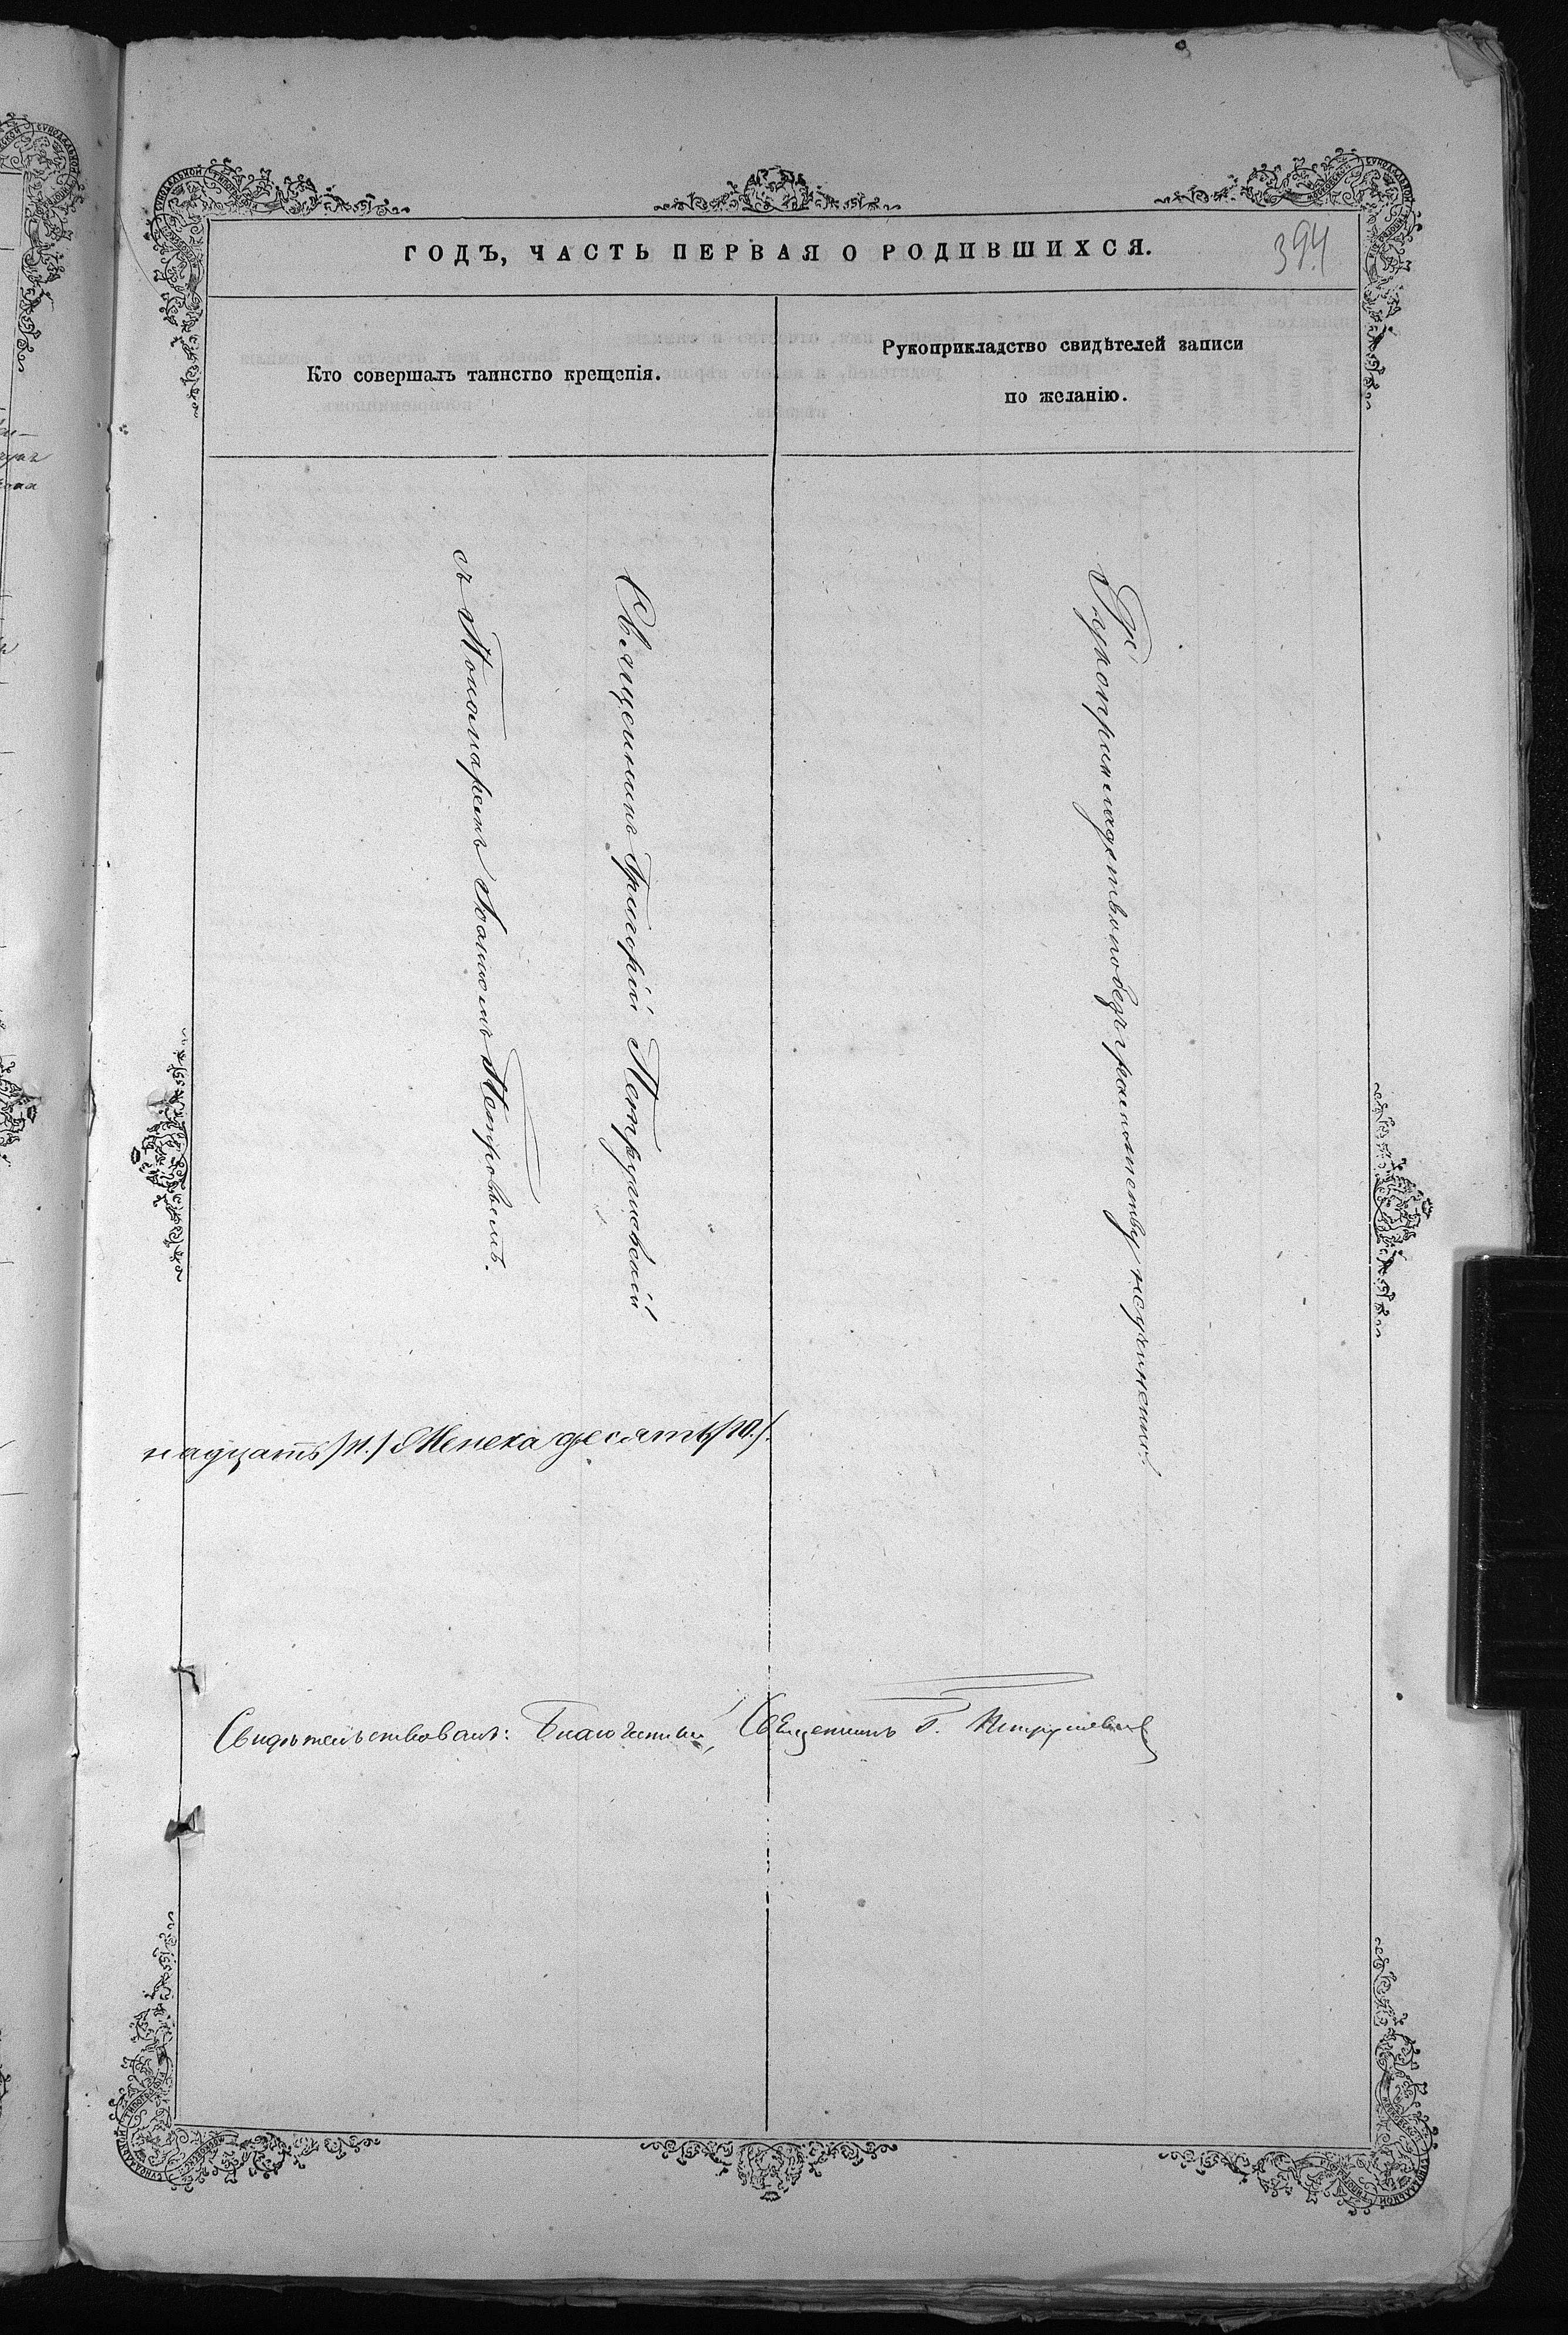 ГОДЪ, ЧАСТЬ ПЕРВАЯ О РОДИВШИХСЯ.
394
Кто совершалъ таинство крещенія.
Рукоприкладство свидѣтелей записи
по желанію.
Священникъ Григорій Петрушевскій
съ Пономаремъ Іоанномъ Петровымъ.
Рукоприкладство по безграмотству неучинено
надцать /11./ Женска десять /10./.
Свидѣтельствовалъ: Благочинный, Священникъ Г. Петрушевскій